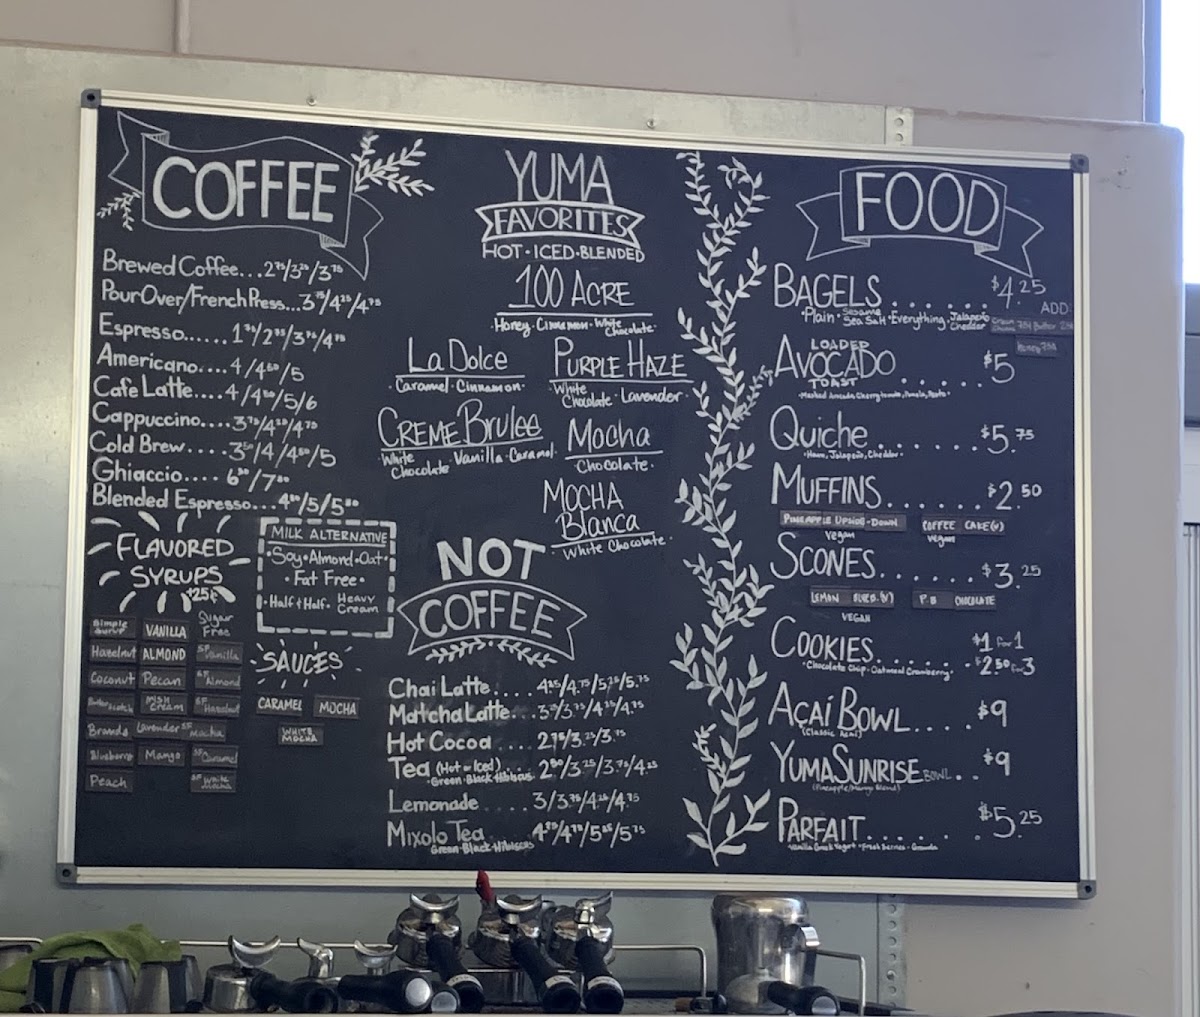 COFFEE
Brewed Coffee...2⁷⁵/3²⁵/3⁷⁵
Pour Over/French Press...3⁷⁵/4²⁵/4⁷⁵
Espresso......1⁷⁵/2⁷⁵/3⁷⁵/4⁷⁵
Americano....4/4⁵⁰/5
Cafe Latte....4/4⁵⁰/5/6
Cappuccino....3⁷⁵/4²⁵/4⁷⁵
Cold Brew....3⁵⁰/4/4⁵⁰/5
Ghiaccio....6⁵⁰/7⁵⁰
Blended Espresso...4⁵⁰/5/5⁵⁰
FLAVORED
SYRUPS
+25¢
Simple Syrup
VANILLA
Sugar Free
Hazelnut
ALMOND
SF Vanilla
Coconut
Pecan
SF Almond
Butterscotch
Irish Cream
SF Hazelnut
Lavender
SF Mocha
Blueberry
Mango
SF Caramel
Peach
SF White Mocha
MILK ALTERNATIVE
•Soy•Almond•Oat•
•Fat Free•
•Half & Half• Heavy Cream
SAUCES
CARAMEL
MOCHA
WHITE MOCHA
YUMA
FAVORITES
HOT•ICED•BLENDED
100 ACRE
•Honey•Cinnamon•White Chocolate•
La Dolce
Caramel•Cinnamon•
PURPLE HAZE
White Chocolate•Lavender•
CREME Brulee
White Chocolate•Vanilla•Caramel•
Mocha
Chocolate•
MOCHA
Blanca
White Chocolate•
NOT
COFFEE
Chai Latte....4²⁵/4.⁷⁵/5.²⁵/5.⁷⁵
Matcha Latte...3²⁵/3.⁷⁵/4²⁵/4.⁷⁵
Hot Cocoa....2⁷⁵/3.²⁵/3.⁷⁵
Tea (Hot or Iced)....2⁵⁰/3.²⁵/3.⁷⁵/4.²⁵
•Green•Black•Hibiscus
Lemonade....3/3.⁷⁵/4.²⁵/4.⁷⁵
Mixolo Tea....4.²⁵/4.⁷⁵/5²⁵/5.⁷⁵
Green•Black•Hibiscus
FOOD
BAGELS......$4.25
ADD:
•Plain•Sesame Sea Salt•Everything•Jalapeño Cheddar
Cream Cheese 75¢ Butter 25¢
Honey 75¢
LOADED
AVOCADO......$5
TOAST
Quiche......$5.75
•Ham, Jalapeño, Cheddar•
MUFFINS......$2.50
PINEAPPLE UPSIDE-DOWN
Vegan
COFFEE CAKE(V)
Vegan
SCONES......$3.25
LEMON BLUEB.(V)
VEGAN
P.B CHOCOLATE
COOKIES......$1 for 1
•Chocolate Chip•Oatmeal Cranberry•
$2.50 for 3
AÇAÍ BOWL....$9
(Classic Acai)
YUMA SUNRISE BOWL..$9
(Pineapple/Mango Blend)
PARFAIT......$5.25
•Vanilla Greek Yogurt•Fresh Berries•Granola